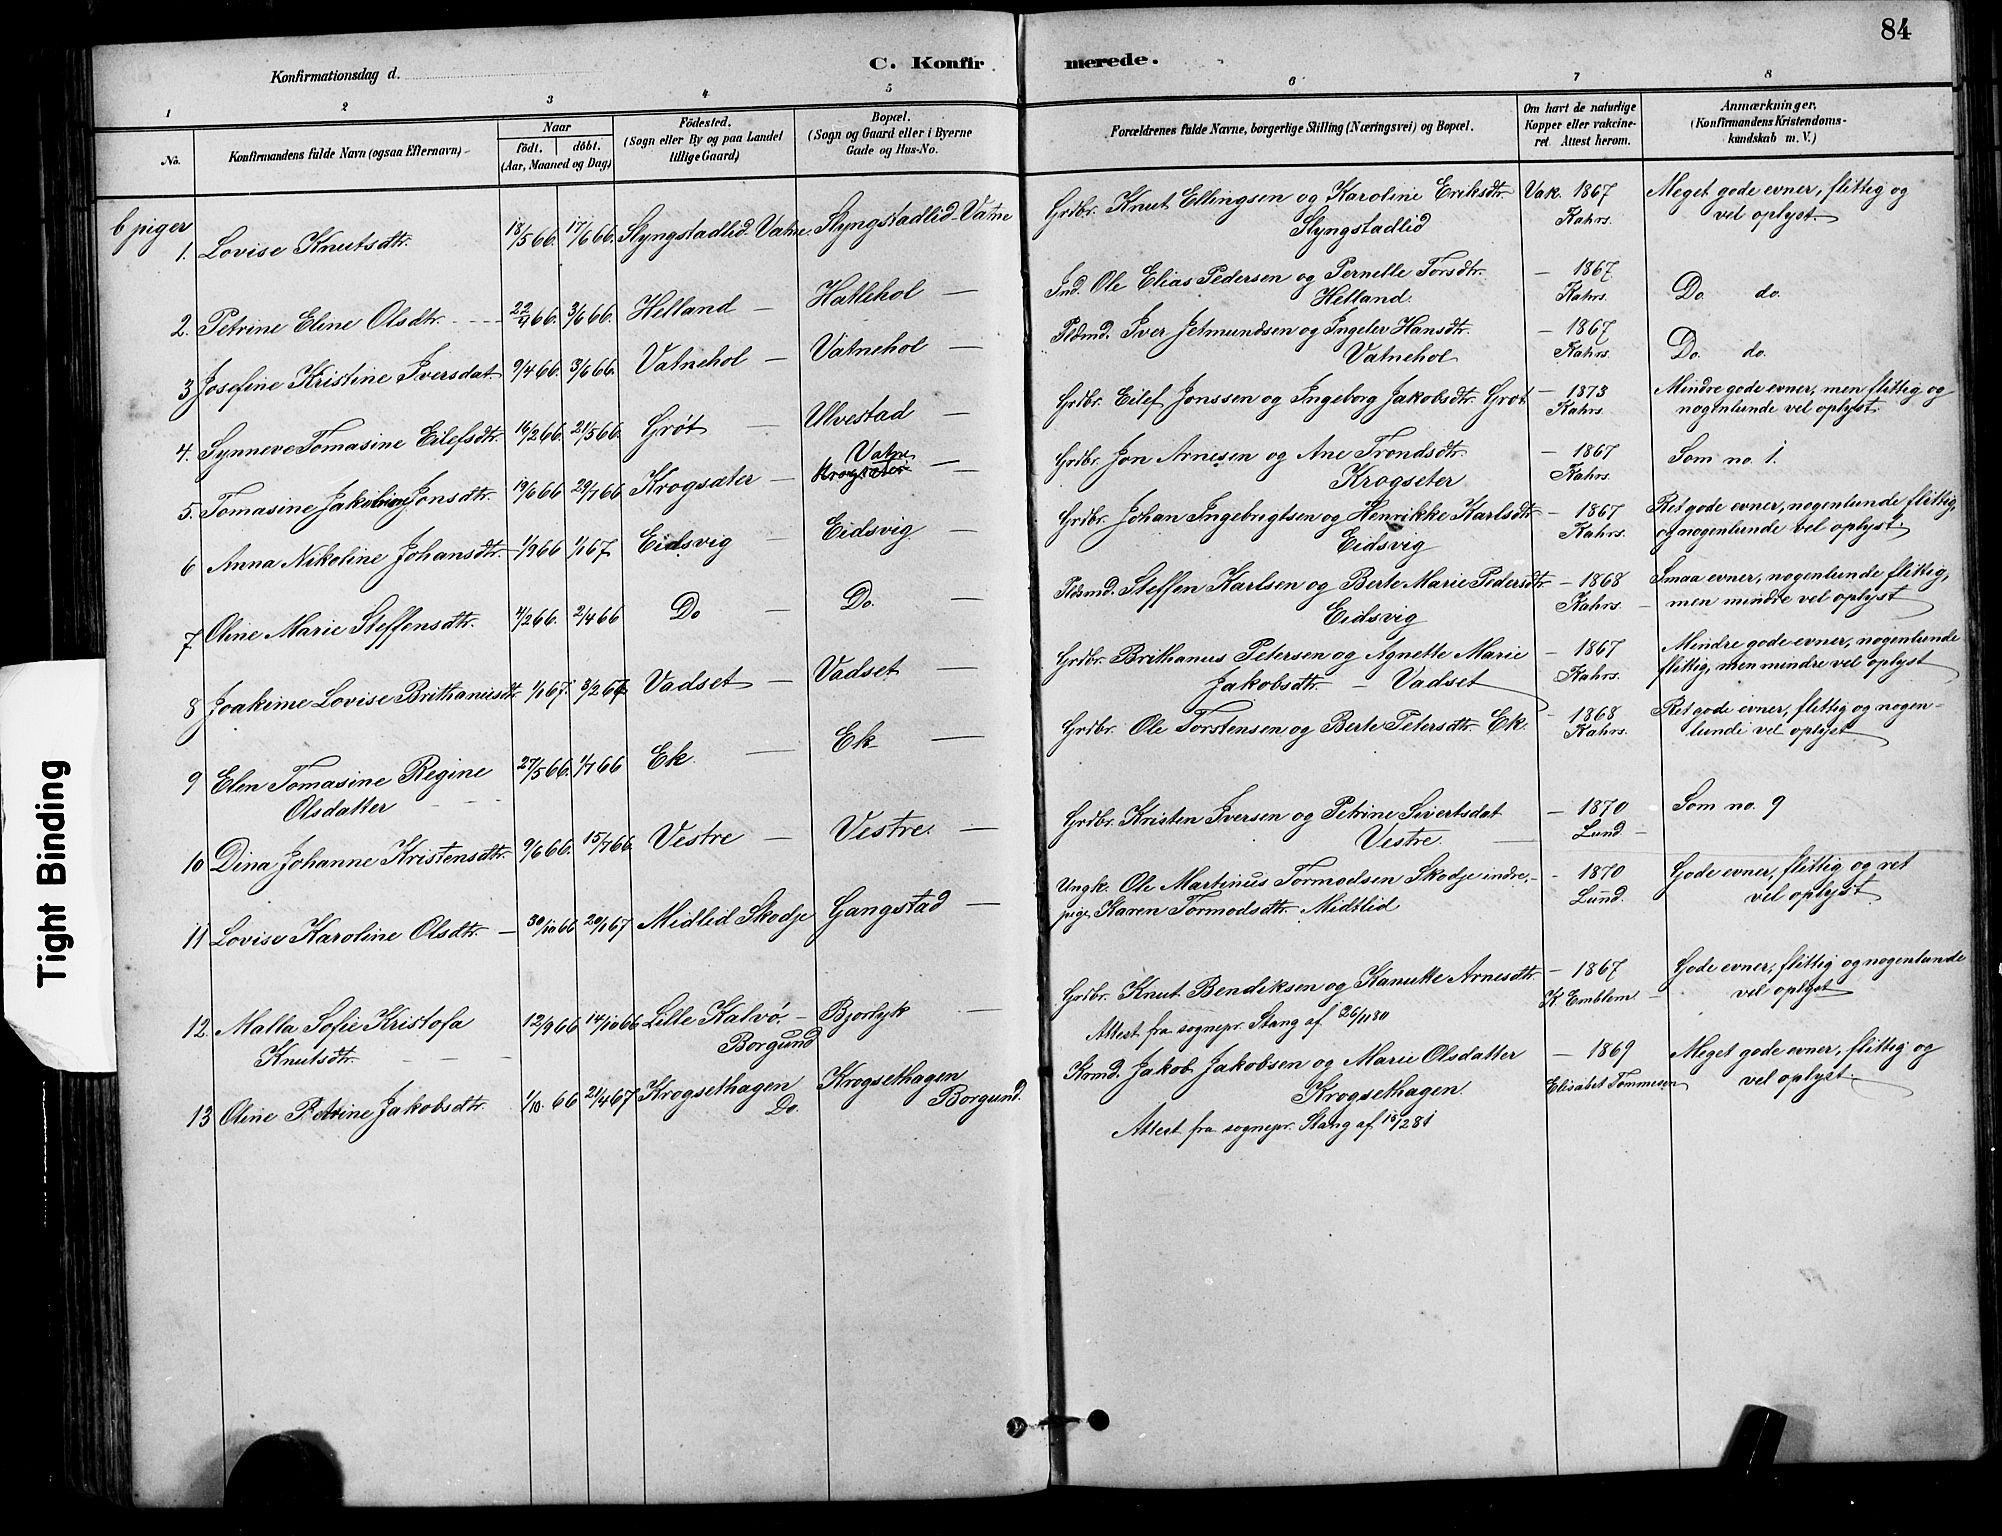 84
Konfirmationsdag d.
C. Konfirmerede.
1 2 3 4 5 6 7 8
No.
Konfirmandens fulde Navn (ogsaa Efternavn)
Naar
født. døbt.
(Aar, Maaned og Dag)
Fødested.
(Sogn eller By og paa Landet
tillige Gaard)
Bopæl.
(Sogn og Gaard eller i Byerne
Gade og Hus-No.
Forældrenes fulde Navne, borgerlige Stilling (Næringsvei) og Bopæl.
Om havt de naturlige
Kopper eller vakcine-
ret. Attest herom.
Anmærkninger.
(Konfirmandens Kristendoms-
kundskab m. V.)
b piger
1. Lovise Knutsdtr. 18/5 66. 17/6 66. Slyngstadlid-Vatne. Slyngstadlid-Vatne Grdbr. Knut Ellingsen og Karoline Eriksdtr. Vak. 1867 Meget gode evner, flittig og
Slyngstadlid Kahrs. vel oplyst.
2. Petrine Eline Olsdtr. 22/4 66. 3/6 66. Helland — Hatlehol — Ind. Ole Elias Pedersen og Pernelle Torsdtr. — 1867 Do. do.
Helland. Kahrs.
3 Josefine Kristine Iversdat. 9/4 66. 3/6 66. Vatnehol — Vatnehol — Pldmd. Iver Jetmundsen og Ingeler Hansdtr. — 1867 Do. do.
Vatnehol Kahrs.
4. Synneve Tomasine Eilefsdtr. 16/2 66. 21/5 66. Grøt — Ulvestad — Grdbr. Eilef Jonssen og Ingeborg Jakobsdtr. Grøt — 1873 Mindre gode evner, men flittig og
Kahrs. nogenlunde vel oplyst.
5. Tomasine Jakobine Jonsdtr. 19/6 66 29/7 66 Krogsæter — Vatne Krogsæter — Grdbr. Jon Arnesen og Ane Trondsdtr. — 1867 Som no. 1.
Krogseter Kahrs.
6 Anna Nikoline Johansdtr. 1/9 66 1/1 67 Eidsvig — Eidsvig — Grdbr. Johan Ingebrigtsen og Henrikke Karlsdtr — 1867 Ret gode evner, nogenlunde flittig,
Eidsvig Kahrs. og nogenlunde vel oplyst.
7 Oline Marie Steffensdtr. 4/2 66. 2/4 66 Do — Do. — Pldsmd. Steffen Karlsen og Berte Marie Pedersdtr — 1868 Smaa evner, nogenlunde flittig,
Eidsvig Kahrs. — men mindre vel oplyst
8 Joakime Lovise Brithanusdtr 1/1 67. 3/2 67 Vadset — Vadset — Grdbr. Brithanus Petersen og Agnette Marie — 1867 Mindre gode evner, nogenlunde
Jakobsdtr. — Vadset Kahrs. flittig, men mindre vel oplyst
9 Elen Tomasine Regine 27/5 66. 1/7 66 Ek. — Ek — Grdbr. Ole Torstensen og Berte Petersdtr. Ek. — 1868 Ret gode evner, flittig og nogen-
Olsdatter Kahrs. lunde vel oplyst
10 Dina Johanne Kristensdtr. 9/6 66. 15/7 66. Vestre — Vestre. — Grdbr. Kristen Iversen og Petrine Sivertsdat — 1870 Som no. 9
Vestre. Lund —
11 Lovise Karoline Olsdtr. — 30/10 66 20/1 67 Midlid Skodje Gangstad — Ungk. Ole Martinus Tormodsen Skodje indre, — 1870 Gode evner, flittig og ret
pige, Karen Tormodsdtr. Midtlid Lund. vel oplyst.
12. Malla Sofie Kristofa 12/9 66 14/10 66 Lille Kalvø. — Bjorlyk — Grdbr. Knut Bendiksen og Kanutte Arnesdtr. — 1867 Gode evner, flittig og nogenlunde
Knutsdtr. Borgund K Emblem — vel oplyst
Attest fra sognepr. Stang af 26/11 80
13 Oline Petrine Jakobsdtr. 1/10. 66 21/4 67 Krogsethagen Krogsethagen Krmd. Jakob Jakobsen og Marie Olsdatter — 1869 Meget gode evner, flittig og
Do. Borgund. Krogsethagen. Elisabet Tommesen vel oplyst.
Attest fra sognepr. Stang af 15/2 81
Tight Binding